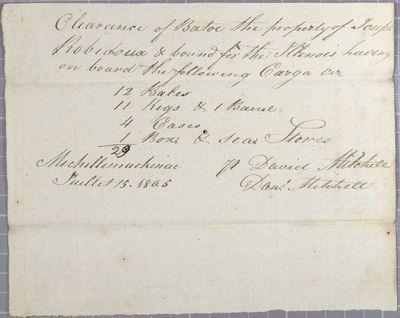 Clearance of Batoe the property of Joseph
Robidoux & bound for the Illinois having
on board the following Cargo viz
12 Bales
11 Kegs & 1 Barrel
4 Cases
1 Box & sea Stores
29
Michilimackinac pr David Mitchell
Juillet 15. 1806 Danl Mitchell